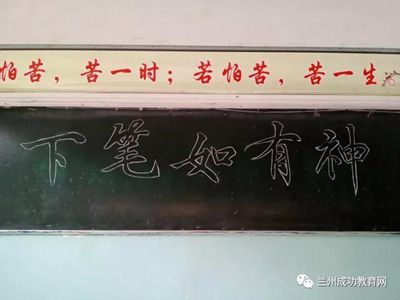 怕苦，苦一时；若怕苦，苦一生
下笔如有神
兰州成功教育网